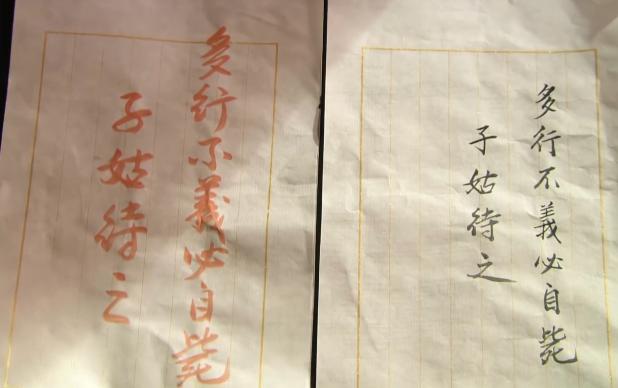 多行不義必自毙
子姑待之
多行不義必自毙
子姑待之